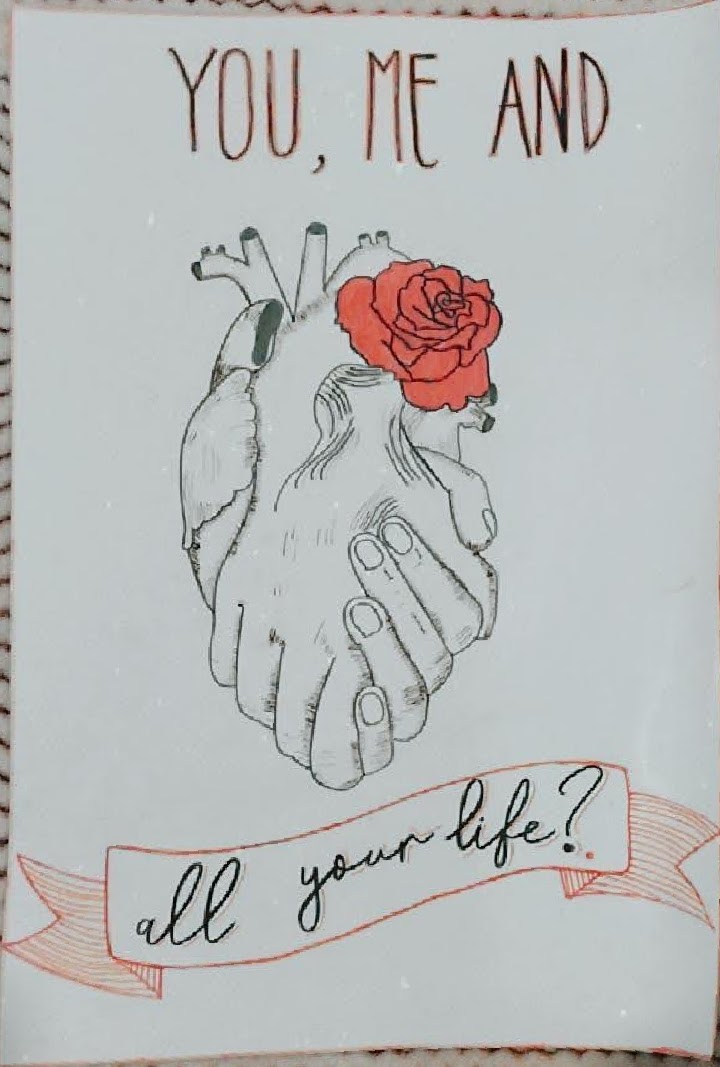 YOU, ME AND
all your life?